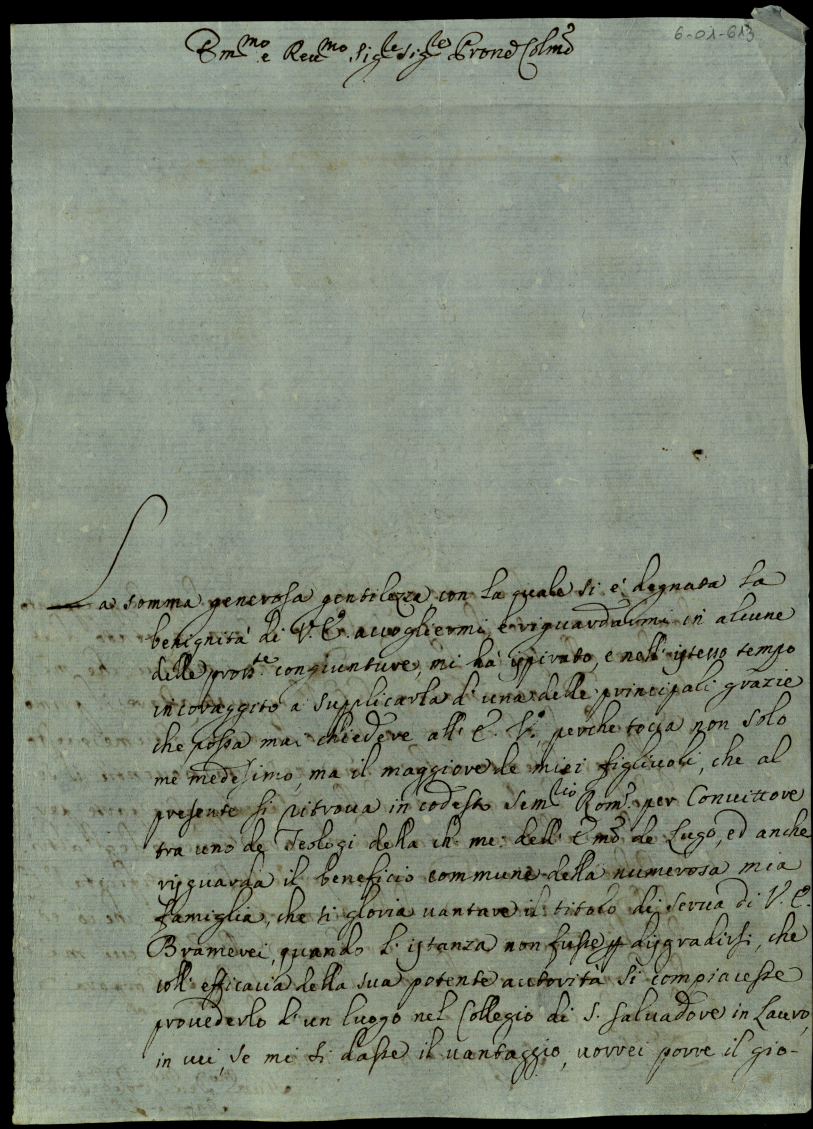 6-01-613
Em.mo e Reu.mo Sig.re Sig.re Prone Colmo
La somma generosa gentilezza con la quale si è degnata la
benignità di V. E. accogliermi, e riguardarmi in alcune
delle pross.te congiunture, mi hà ispirato, e nell' istesso tempo
incoraggito a supplicarla d' una delle principali grazie
che possa mai chiedere all' E. V., perche tocca non solo
me medesimo, ma il maggiore de miei figliuoli, che al
presente si ritroua in codesto Sem.rio Rom.o per Conuittore
tra uno de Teologi della ch: me: dell' E.mo de Lugo, ed anche
risguarda il beneficio commune della numerosa mia
famiglia, che si gloria uantare il titolo di serua di V. E.
Bramerei, quando l' istanza non fusse p disgradirsi, che
coll' efficacia della sua potente autorità si compiacesse
prouederlo d' un luogo nel Collegio di S. Saluadore in Lauro,
in cui, se mi si dasse il uantaggio, uorrei porre il gio-